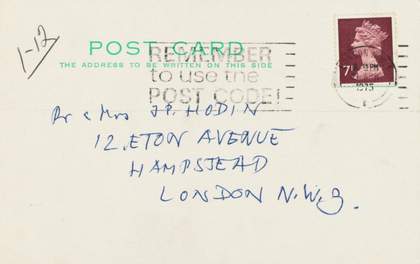 1-12
POST CARD
THE ADDRESS TO BE WRITTEN ON THIS SIDE
REMEMBER
to use the
POST CODE!
7
PM
1975
Dr & Mrs J.P. HODIN
12, ETON AVENUE
HAMPSTEAD
LONDON N.W.3.